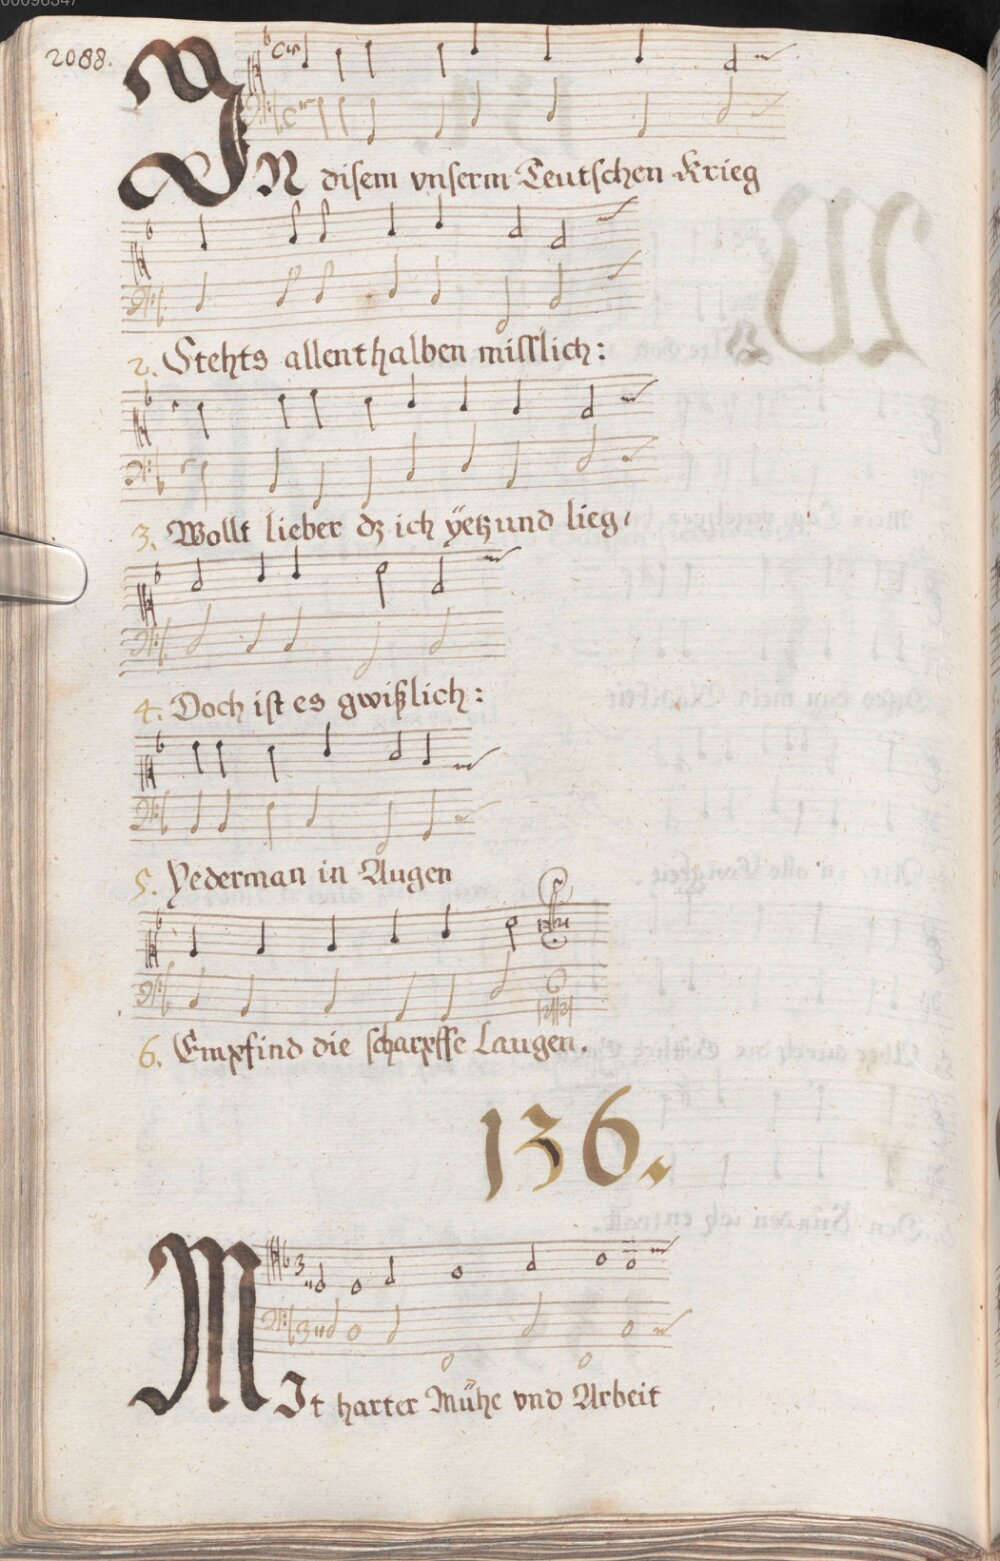 2088.
IN disem vnserm Teutschen Krieg
2. Stehts allenthalben misslich:
3. Wollt lieber dz ich ÿetzund lieg,
4. Doch ist es gwißlich:
5. Yederman in Augen
6. Empfind die scharpffe Laugen.
136.
MIt harter Mühe vnd Arbeit